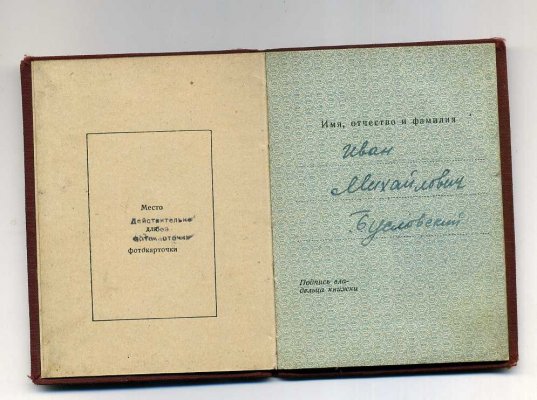 Место
Действительно
для без
фотокарточки
фотокарточки
Имя, отчество и фамилия
Иван
Михайлович
Бусловский
Подпись вла-
дельца книжки